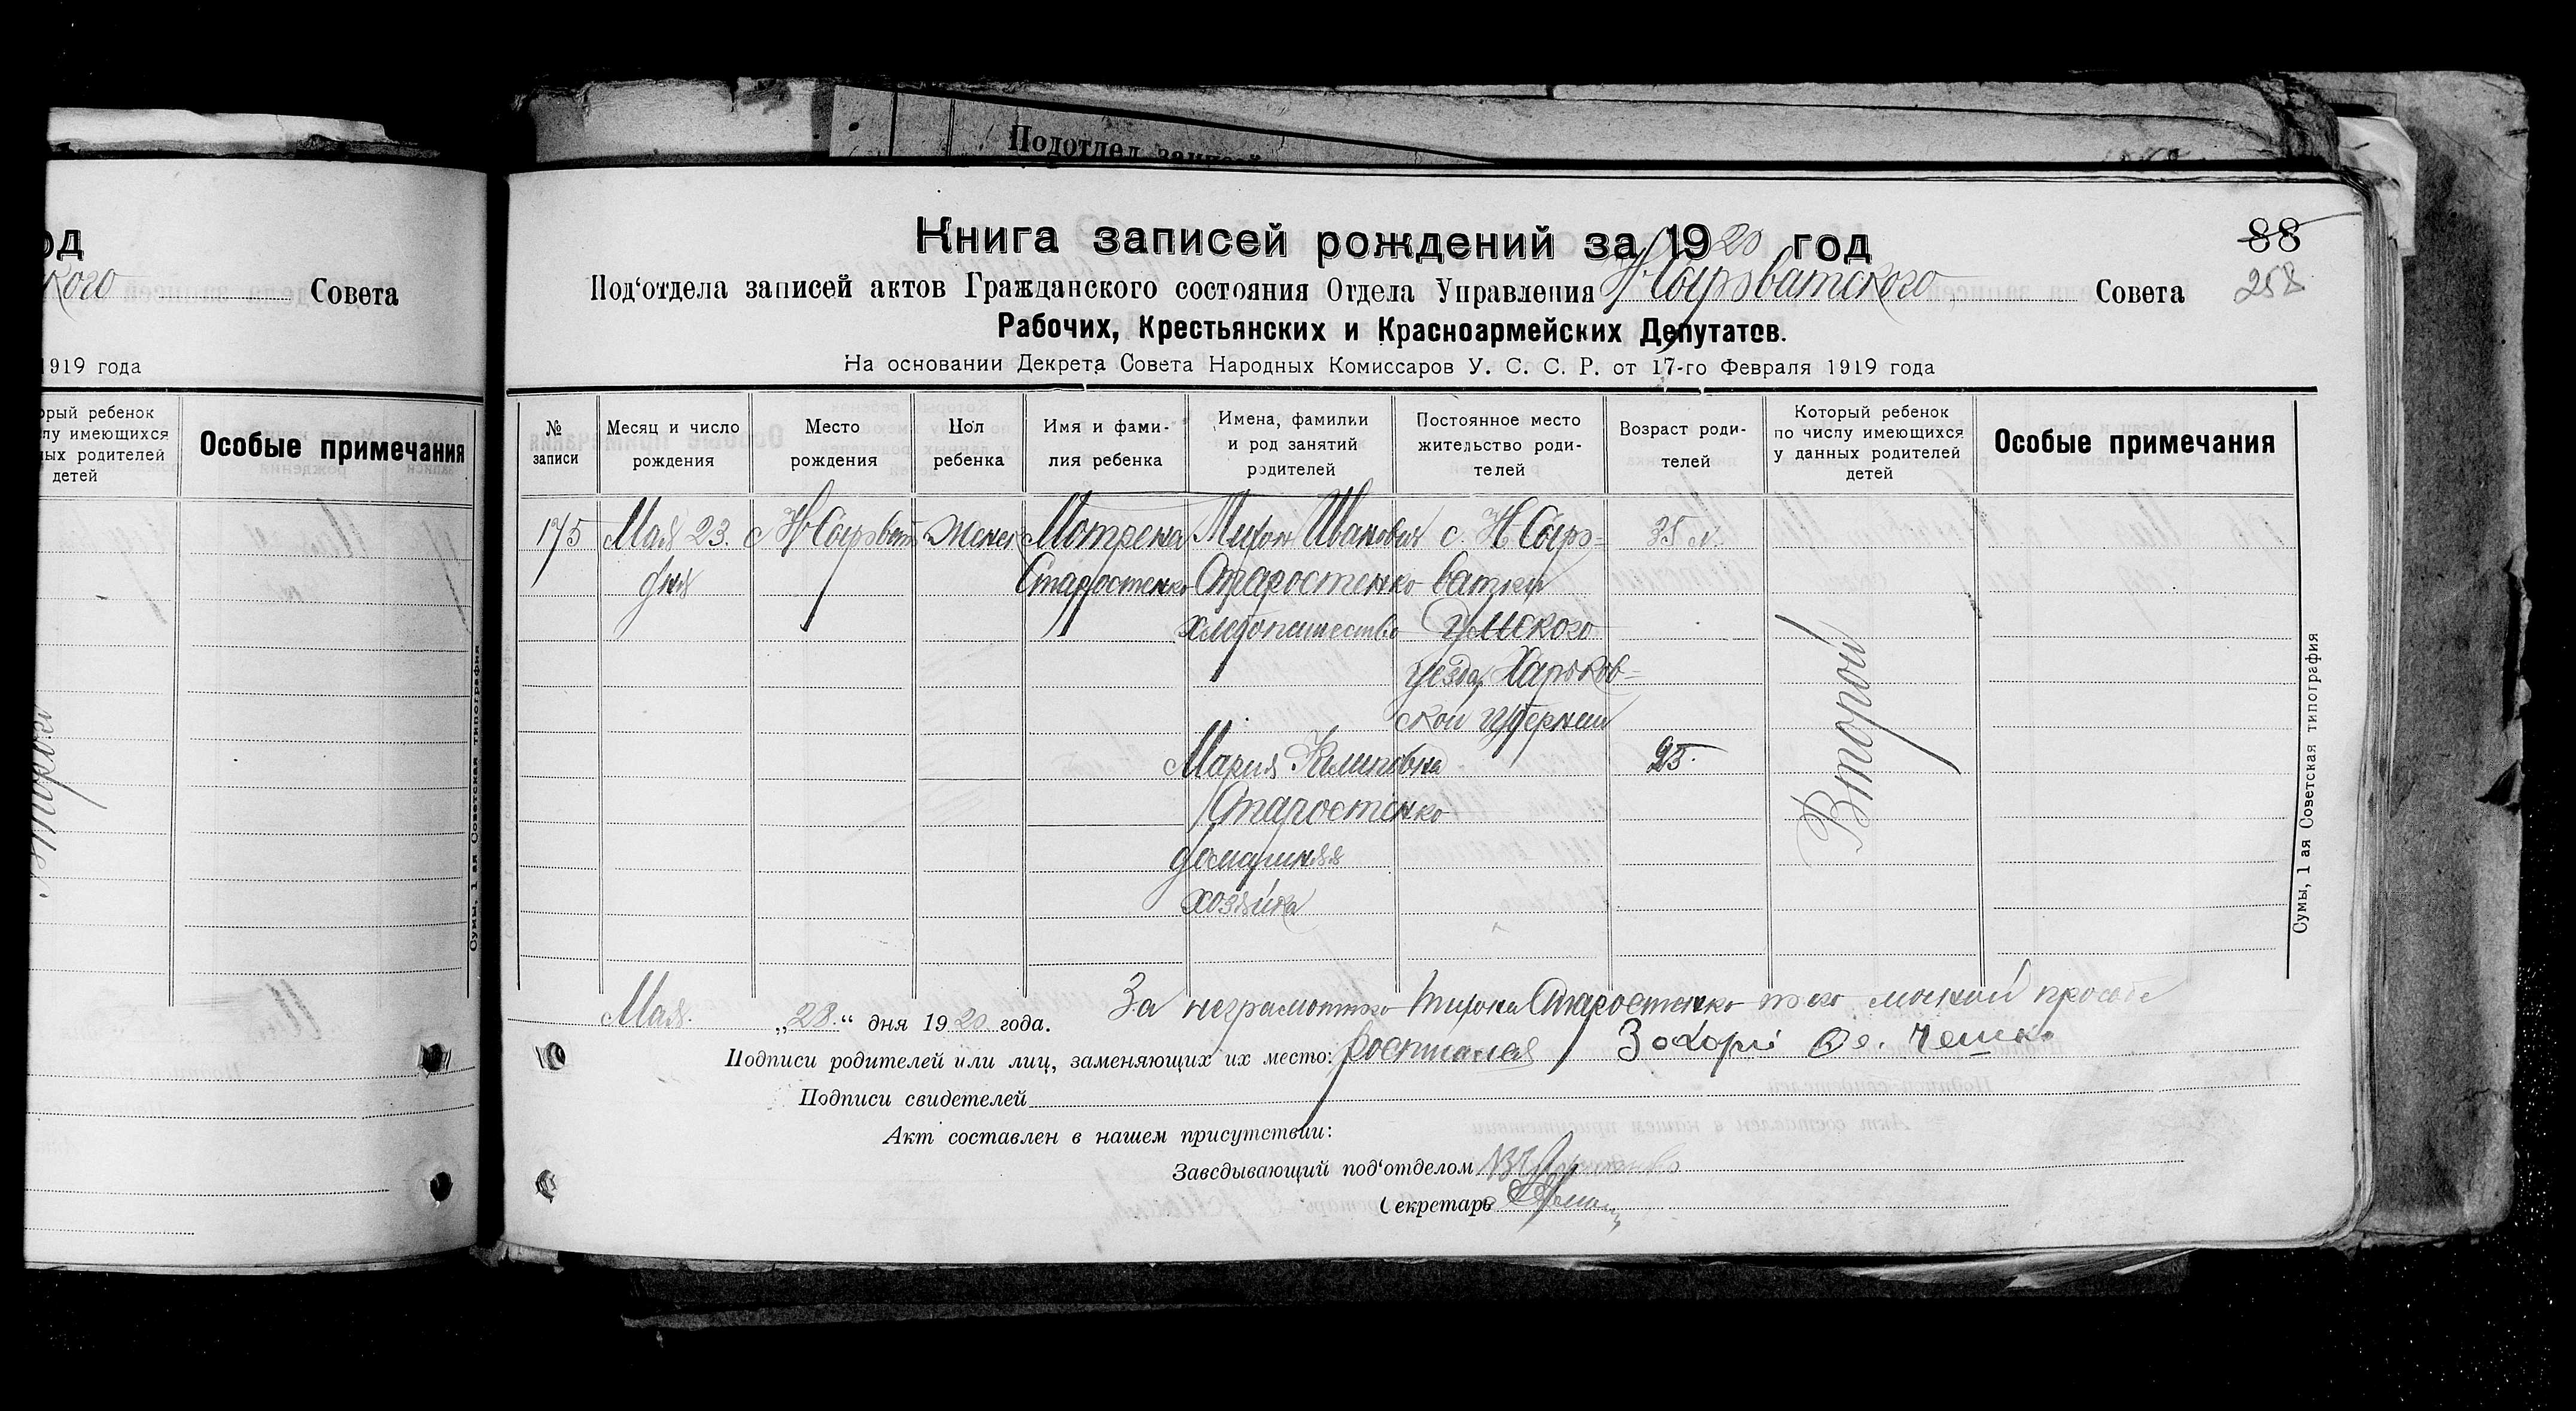 Подотдел записей
од
кого Совета
1919 года
орый ребенок
лу имеющихся
ных родителей
детей
Особые примечания
Сумы, 1 ая Советская типография
88
258
Книга записей рождений за 1920 год
Под‘отдела записей актов Гражданского состояния Отдела Управления Н Сыроватского Совета
Рабочих, Крестьянских и Красноармейских Депутатов.
На основании Декрета Совета Народных Комиссаров У. С. С. Р. от 17-го Февраля 1919 года
№ записи
Месяц и число рождения
Место рождения
Пол ребенка
Имя и фами-
лия ребенка
Имена, фамилии
и род занятий
родителей
Постоянное место
жительство роди-
телей
Возраст роди-
телей
Который ребенок
по числу имеющихся
у данных родителей
детей
Особые примечания
175 Мая 23. с Н Сыроват Женск Мотрена Тихон Иванович с. Н Сыро= 35 л.
дня Старостенко Старостенко ватки
хлебопашество Сумского
уезда Харьков=
ской губернии
Мария Климовна 25.
Старостенко
домашняя
хозяйка
Второй
Сумы, 1 ая Советская типография
Мая „28.“ дня 1920 года.
За неграмотного Тихона Старостенко по его просьбе
Подписи родителей или лиц, заменяющих их место: росписался
Подписи свидетелей
Акт составлен в нашем присутствии:
Заведывающий под‘отделом
Секретарь